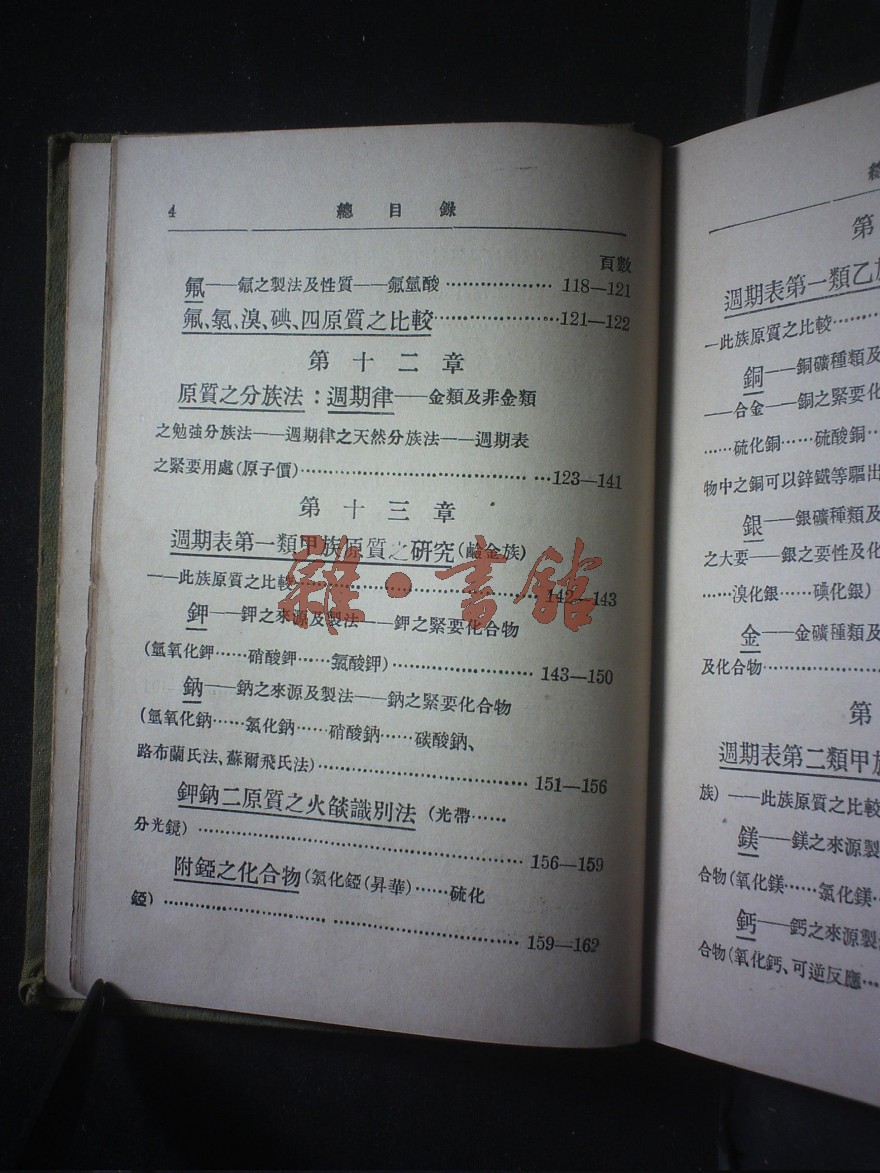 4 總目錄
頁數
氟——氟之製法及性質——氟氫酸………………118—121
氟、氯、溴、碘、四原質之比較…………………121—122
第十二章
原質之分族法：週期律——金類及非金類
之勉強分族法——週期律之天然分族法——週期表
之緊要用處(原子價)………………………………123—141
第十三章
週期表第一類甲族原質之研究(鹼金族)
——此族原質之比較………………………………142—143
鉀——鉀之來源及製法——鉀之緊要化合物
(氫氧化鉀……硝酸鉀……氯酸鉀)………………143—150
鈉——鈉之來源及製法——鈉之緊要化合物
(氫氧化鈉……氯化鈉……硝酸鈉……碳酸鈉、
路布蘭氏法、蘇爾飛氏法)…………………………151—156
鉀鈉二原質之火燄識別法(光帶……
分光鏡)………………………………………………156—159
附錏之化合物(氯化錏(昇華)……硫化
錏)……………………………………………………159—162
雜·書館
總
第
週期表第一類乙族
—此族原質之比較………
銅——銅礦種類及
——合金——銅之緊要化
……硫化銅……硫酸銅…
物中之銅可以鋅鐵等驅出
銀——銀礦種類及
之大要——銀之要性及化
……溴化銀……碘化銀)
金——金礦種類及
及化合物………………
第
週期表第二類甲族
族)——此族原質之比較
鎂——鎂之來源製
合物(氧化鎂……氯化鎂…
鈣——鈣之來源製
合物(氧化鈣、可逆反應…